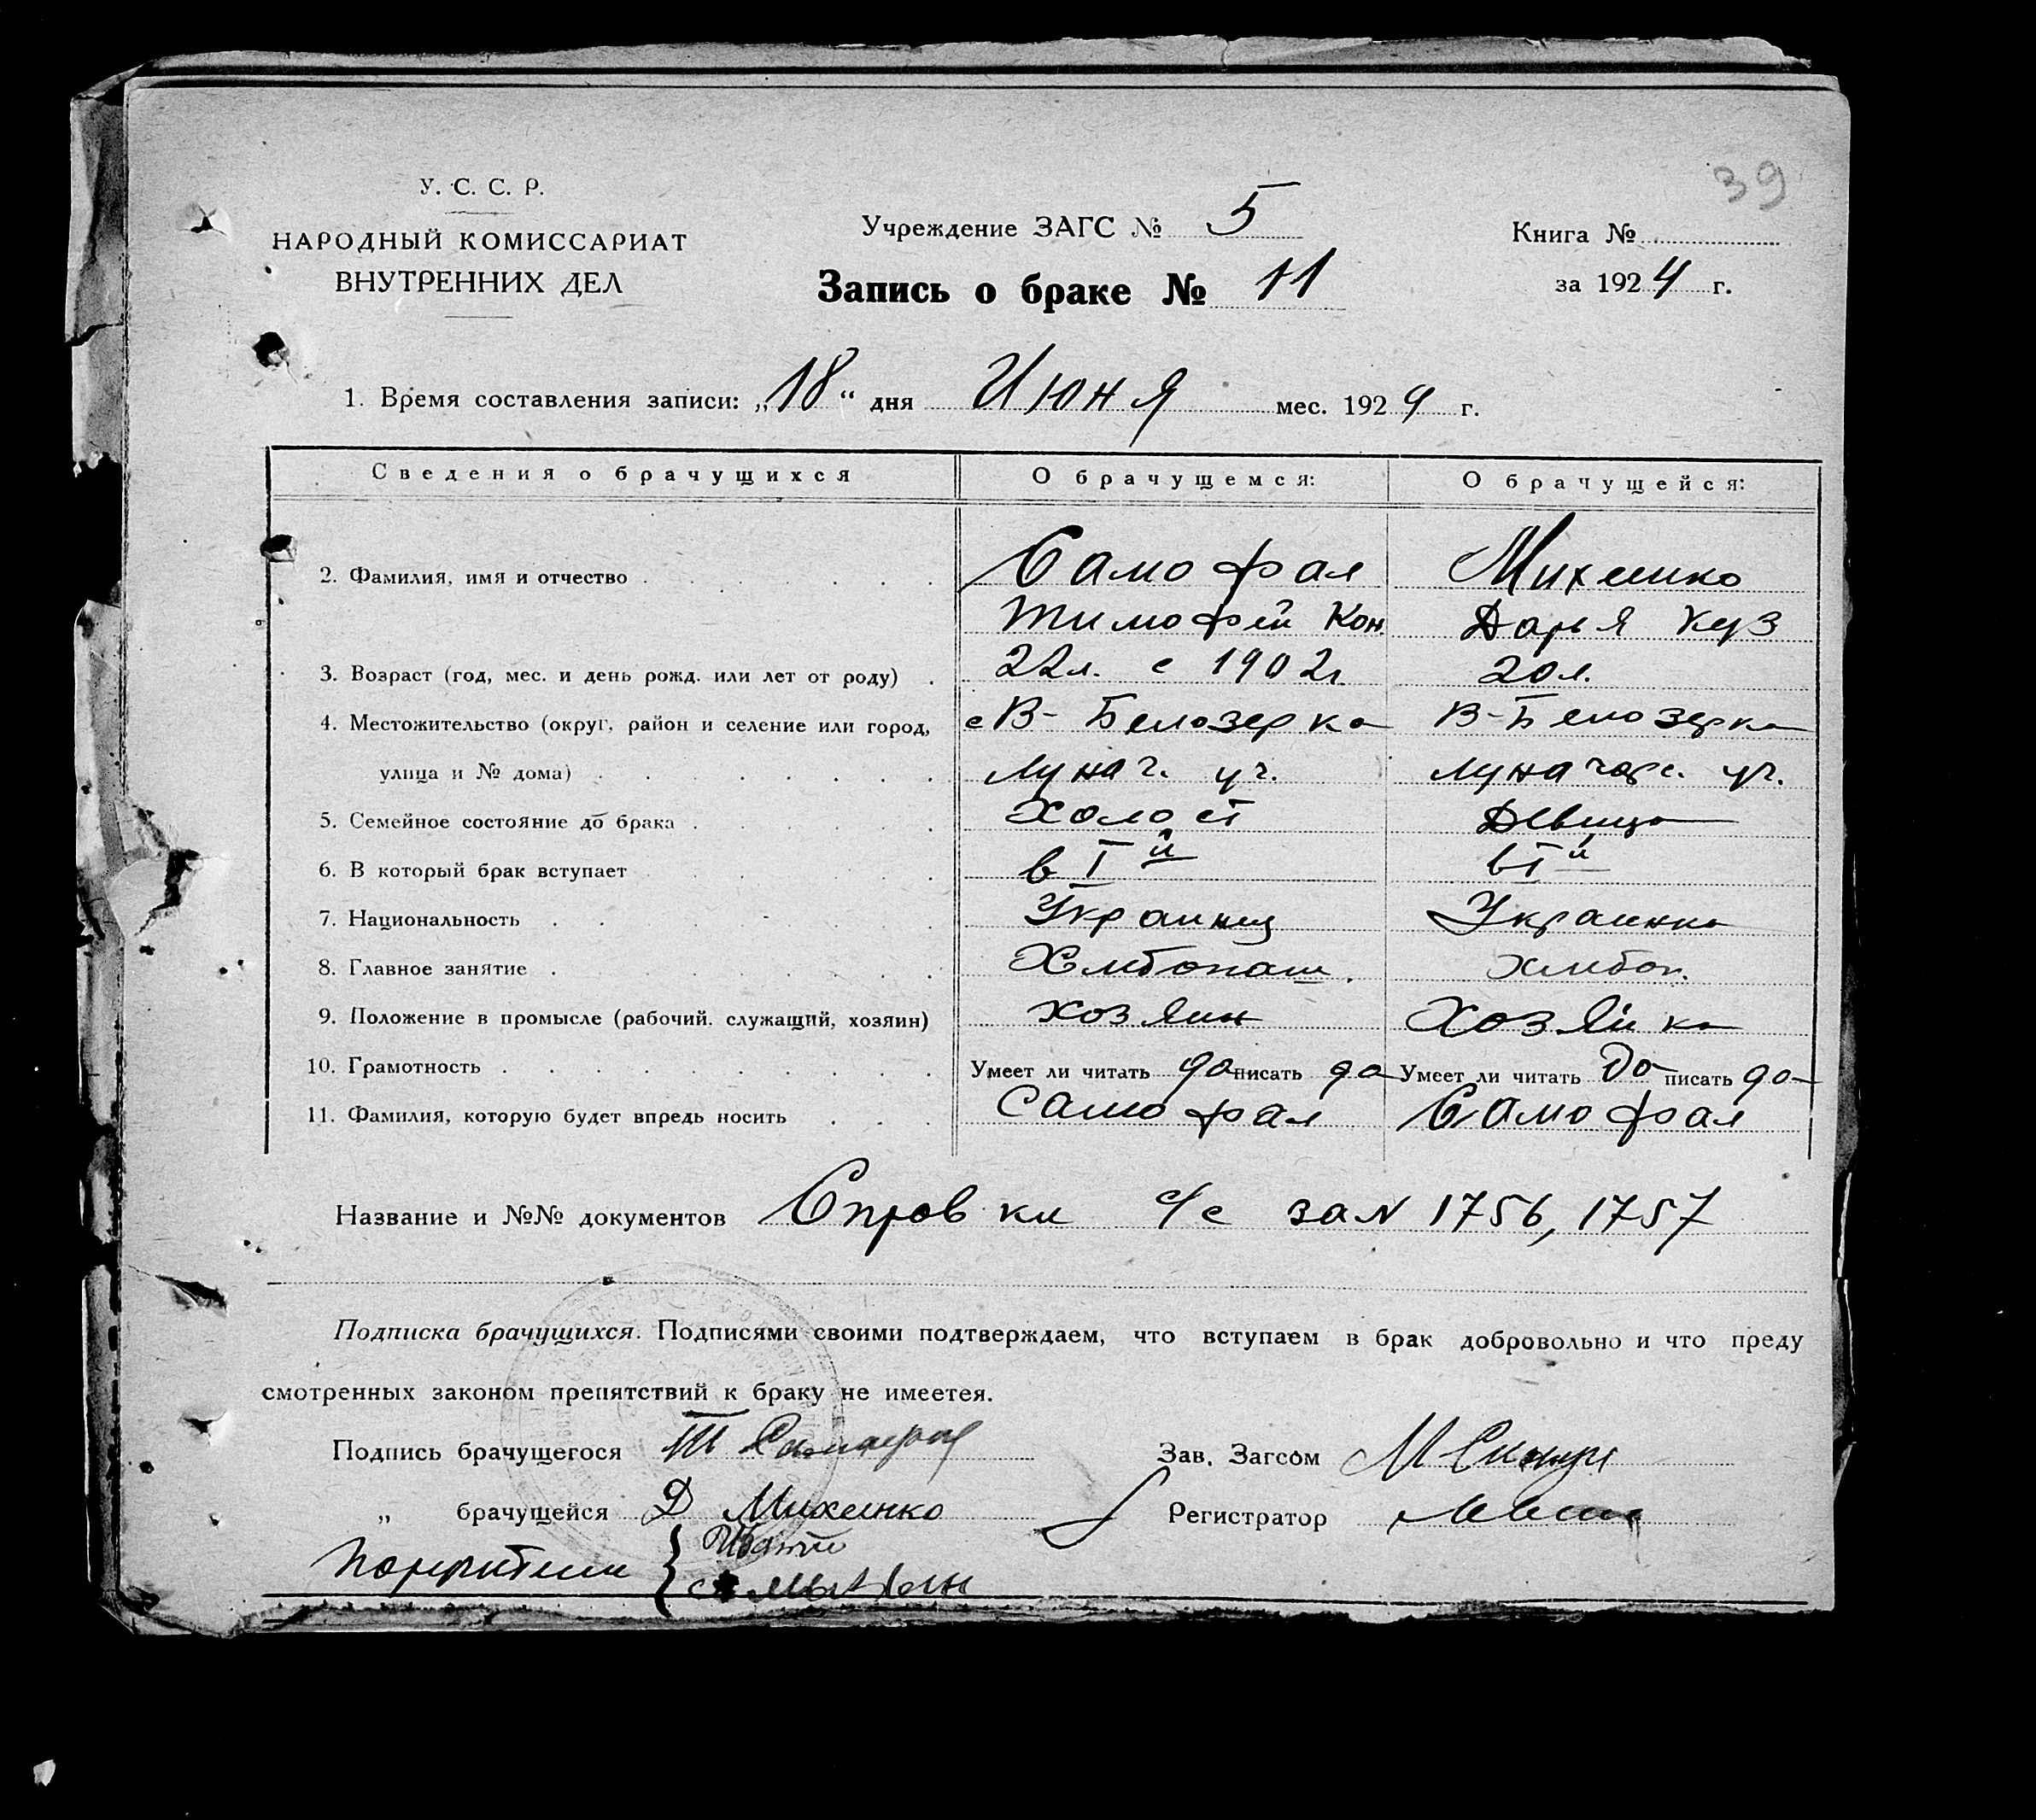 39
У. С. С. Р.
НАРОДНЫЙ КОМИССАРИАТ
ВНУТРЕННИХ ДЕЛ
Учреждение ЗАГС № 5
Запись о браке № 11
Книга №
за 1924 г.
1. Время составления записи: „18“ дня Июня мес. 1924 г.
Сведения о брачущихся О брачущемся: О брачущейся:
2. Фамилия, имя и отчество Самофал Михенко
Тимофей Кон. Дарья Куз
3. Возраст (год, мес. и день рожд. или лет от роду) 22л. с 1902г. 20л.
4. Местожительство (округ, район и селение или город, с В-Белозерка В-Белозерка
улица и № дома) Лунач. уч. Луначарс. уч.
5. Семейное состояние до брака Холост Девица
6. В который брак вступает в I й в I й
7. Национальность Украинец Украинка
8. Главное занятие Хлебопаш. хлебоп.
9. Положение в промысле (рабочий. служащий, хозяин) хозяин Хозяйка
10. Грамотность Умеет ли читать да писать да Умеет ли читать Да писать да
11. Фамилия, которую будет впредь носить Самофал Самофал
Название и №№ документов Справки с/с за N 1756, 1757
Подписка брачущихся. Подписями своими подтверждаем, что вступаем в брак добровольно и что преду
смотренных законом препятствий к браку не имеетея.
Подпись брачущегося Т Самофал Зав. Загсом
„ брачущейся Д Михенко Регистратор